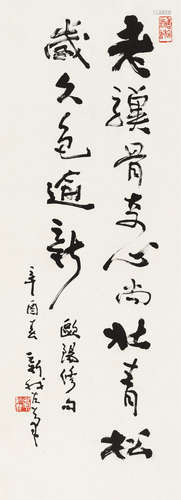 老骥骨奇心尚壮青松
岁久色逾新
欧阳修句
辛酉夏